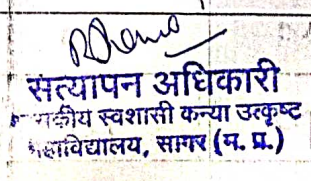 सत्यापन अधिकारी
स्वशासी कन्या उत्कृष्ट
महाविद्यालय, सागर (म. प्र.)